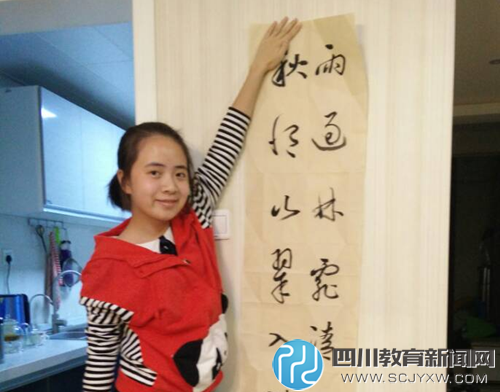 雨過林霏清
秋將山翠入
四川教育新闻网
WWW.SCJYXW.COM